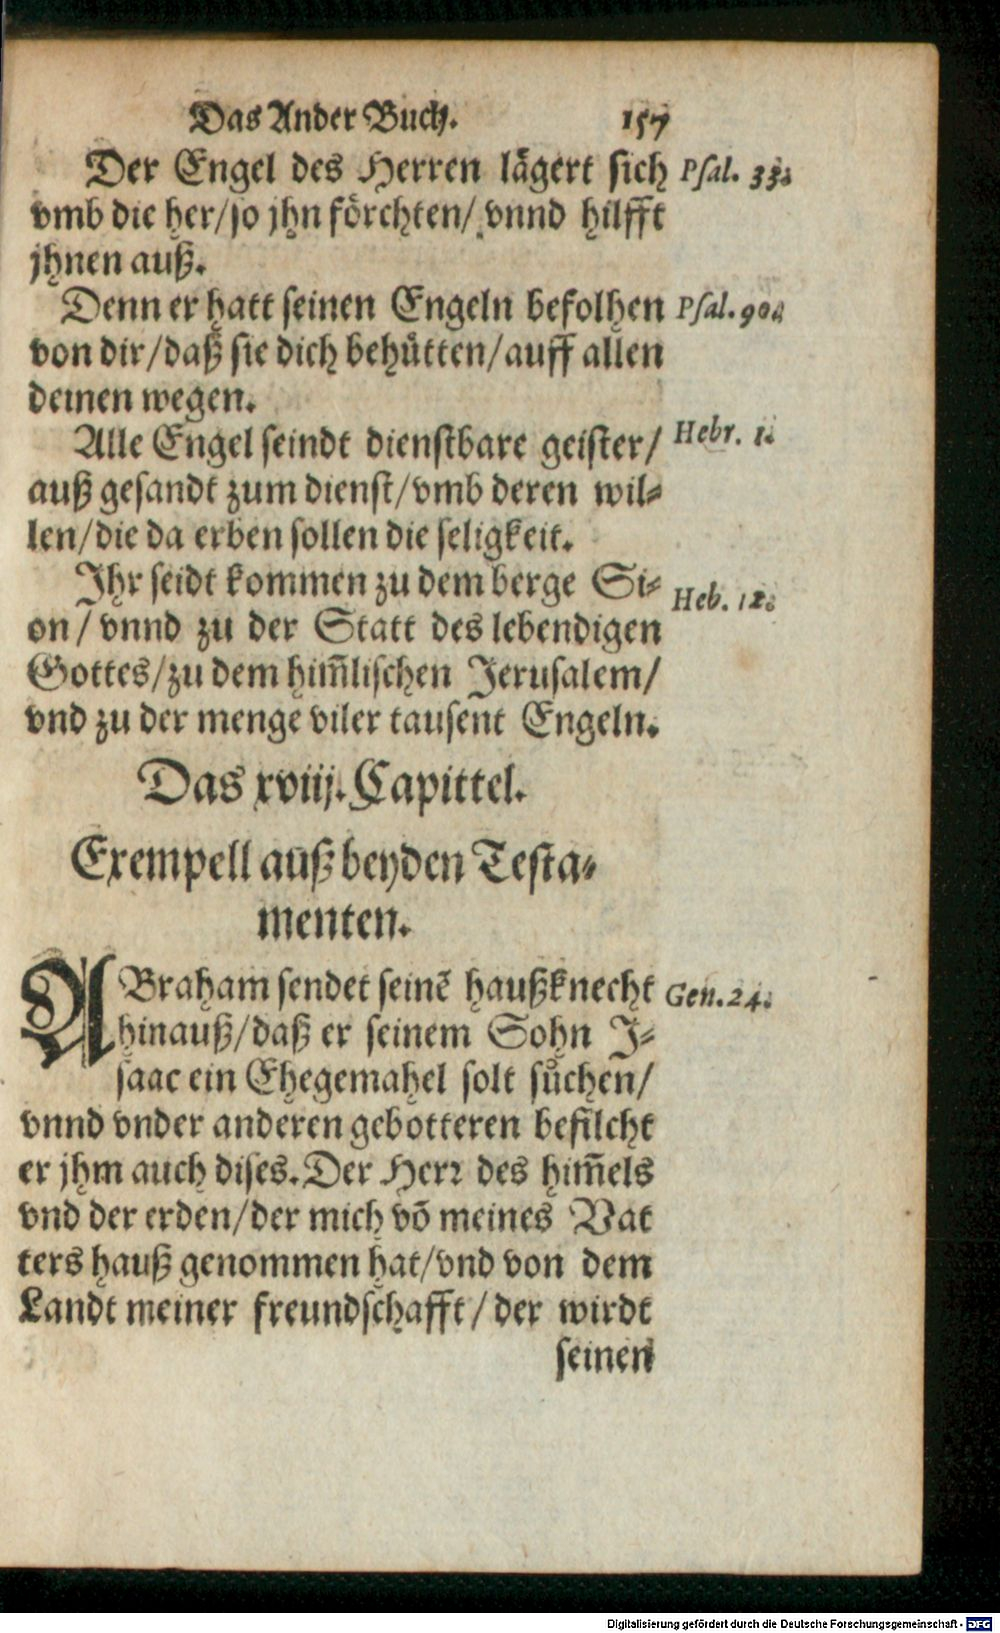 Das Ander Buch. 157
Der Engel des Herren lägert sich Psal. 33.
vmb die her/so jhn förchten/ vnnd hilfft
jhnen auß.
Denn er hatt seinen Engeln befolhen Psal. 90.
von dir/daß sie dich behütten/auff allen
deinen wegen.
Alle Engel seindt dienstbare geister/ Hebr. 1.
auß gesandt zum dienst/vmb deren wil-
len/die da erben sollen die seligkeit.
Ihr seidt kommen zu dem berge Si- Heb. 12.
on/ vnnd zu der Statt des lebendigen
Gottes/zu dem him̃lischen Jerusalem/
vnd zu der menge viler tausent Engeln.
Das xviij. Capittel.
Exempell auß beyden Testa-
menten.
ABraham sendet seinẽ haußknecht Gen. 24.
hinauß/daß er seinem Sohn I-
saac ein Ehegemahel solt suͤchen/
vnnd vnder anderen gebotteren befilcht
er jhm auch dises. Der Herr des him̃els
vnd der erden/der mich võ meines Vat
ters hauß genommen hat/vnd von dem
Landt meiner freundschafft/ der wirdt
seinen
Digitalisierung gefördert durch die Deutsche Forschungsgemeinschaft - DFG